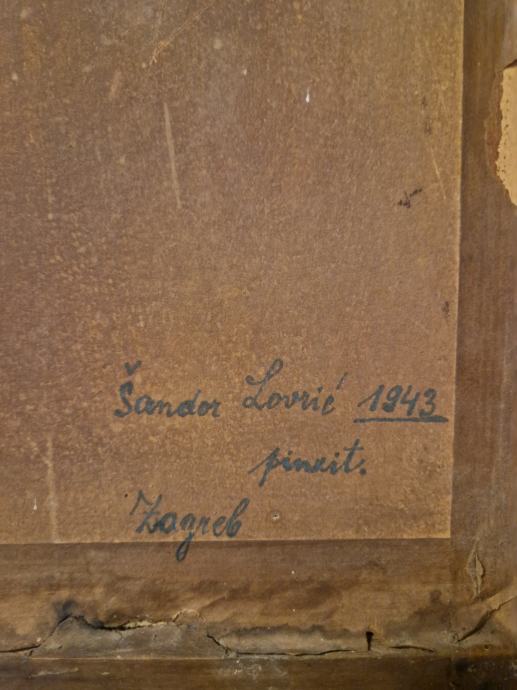 Šandor Lovrić 1943
pinxit.
Zagreb